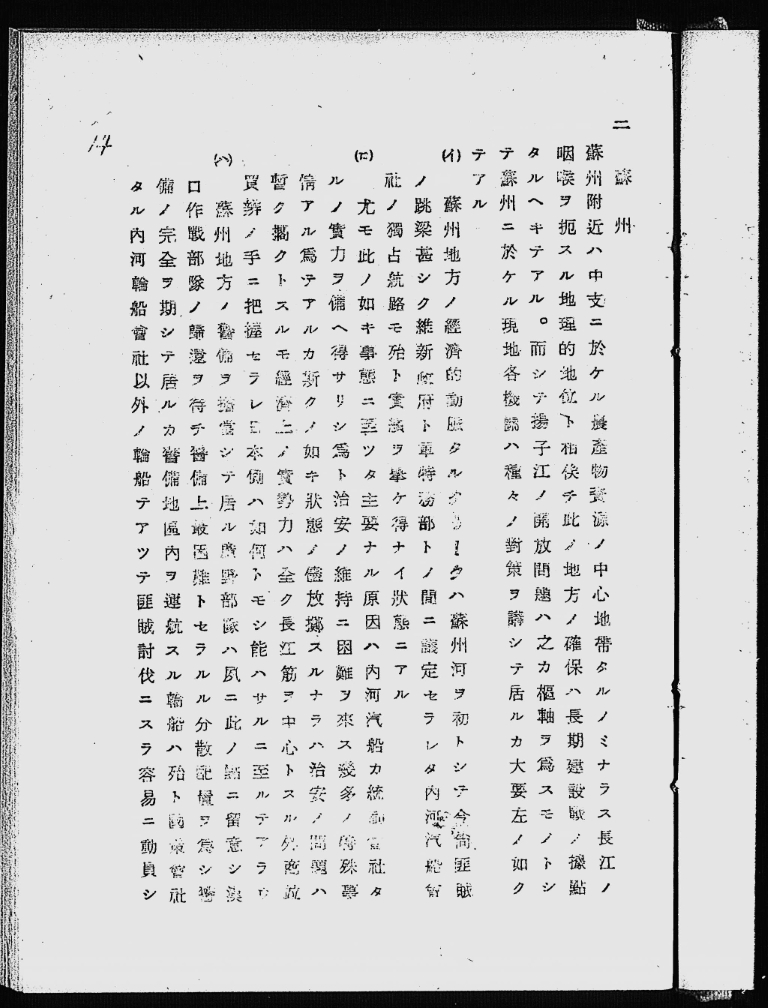 二 蘇州
蘇州附近ハ中支ニ於ケル農產物資源ノ中心地帶タルノミナラス長江ノ
咽喉ヲ扼スル地理的地位ト相俟チ此ノ地方ノ確保ハ長期建設戰ノ據點
タルヘキテアル。而シテ揚子江ノ開放問題ハ之カ樞軸ヲ爲スモノトシ
テ蘇州ニ於ケル現地各機關ハ種々ノ對策ヲ講シテ居ルカ大要左ノ如ク
テアル
(イ) 蘇州地方ノ經濟的動脈タルクリークハ蘇州河ヲ初トシテ今尙匪賊
ノ跳梁甚シク維新政府ト軍特務部トノ間ニ議定セラレタ內河汽船會
社ノ獨占航路モ殆ト實績ヲ擧ケ得ナイ狀態ニアル
(ロ) 尤モ此ノ如キ事態ニ至ツタ主要ナル原因ハ內河汽船カ統制會社タ
ルノ實力ヲ備ヘ得サリシ爲ト治安ノ維持ニ困難ヲ來ス幾多ノ特殊事
情アル爲テアルカ斯クノ如キ狀態ノ儘放擲スルナラハ治安ノ問題ハ
暫ク擱クトスルモ經濟上ノ實勢力ハ全ク長江筋ヲ中心トスル外商並
買辦ノ手ニ把握セラレ日本側ハ如何トモシ能ハサルニ至ルテアラウ
(ハ) 蘇州地方ノ警備ヲ擔當シテ居ル 部隊ハ夙ニ此ノ點ニ留意シ漢
口作戰部隊ノ歸還ヲ待チ警備上最困難トセラルル分散配置ヲ爲シ警
備ノ完全ヲ期シテ居ルカ警備地區內ヲ運航スル輪船ハ殆ト國策會社
タル內河輪船會社以外ノ輪船テアツテ匪賊討伐ニスラ容易ニ動員シ
14